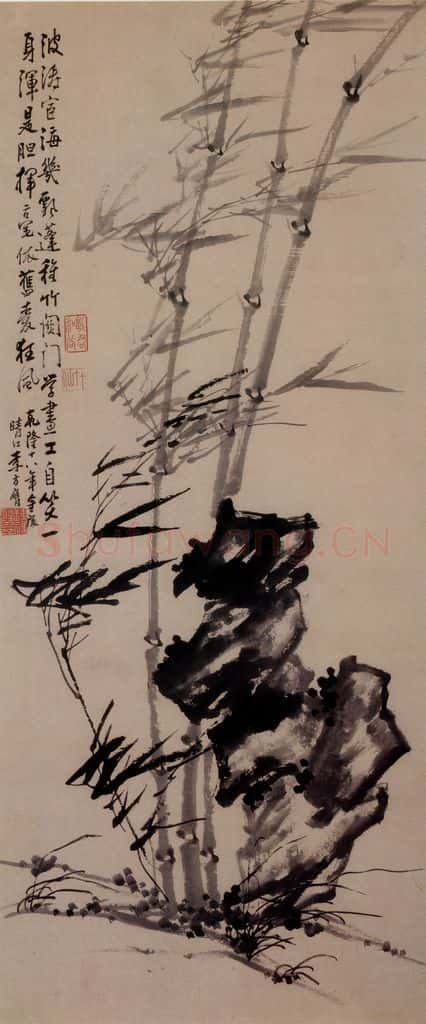 波濤宦海幾飄蓬種竹関门学畫工自笑一
身渾是胆揮毫依舊愛狂風
乾隆十八年
晴江李方膺
Shufawang.CN